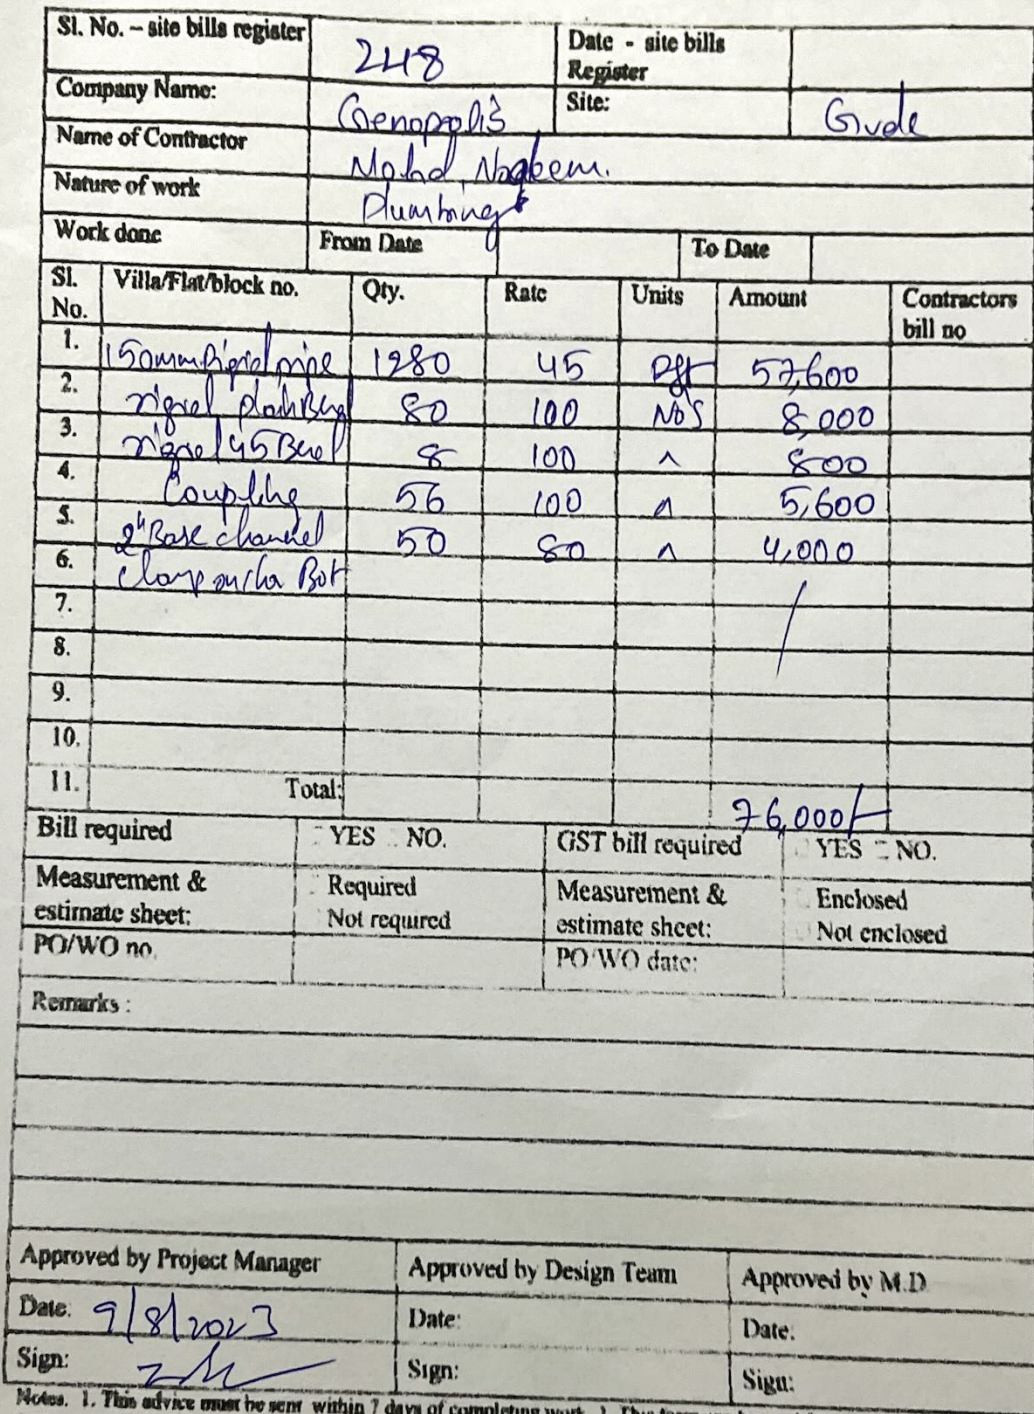 Sl. No. – site bills register 248 Date - site bills Register
Company Name: Genopolis Site: Gvde
Name of Contractor Mohd. Naqeem.
Nature of work Plumbing
Work done From Date To Date
Sl. No. Villa/Flat/block no. Qty. Rate Units Amount Contractors bill no
1. 150mm Rigid pipe 1280 45 Rft 57,600
2. 80 100 NoS 8,000
3. 45 Bend 8 100 " 800
4. Coupling 56 100 " 5,600
5. 2" Base channel 50 80 " 4,000
6. Clamp
7.
8.
9.
10.
11. Total: 76,000/-
Bill required YES NO. GST bill required YES NO.
Measurement & estimate sheet: Required Not required Measurement & estimate sheet: Enclosed Not enclosed
PO/WO no. PO/WO date:
Remarks :
Approved by Project Manager Approved by Design Team Approved by M.D
Date. 9/8/2023 Date: Date.
Sign: Sign: Sign:
Notes. 1. This advice must be sent within 7 days of completing work.